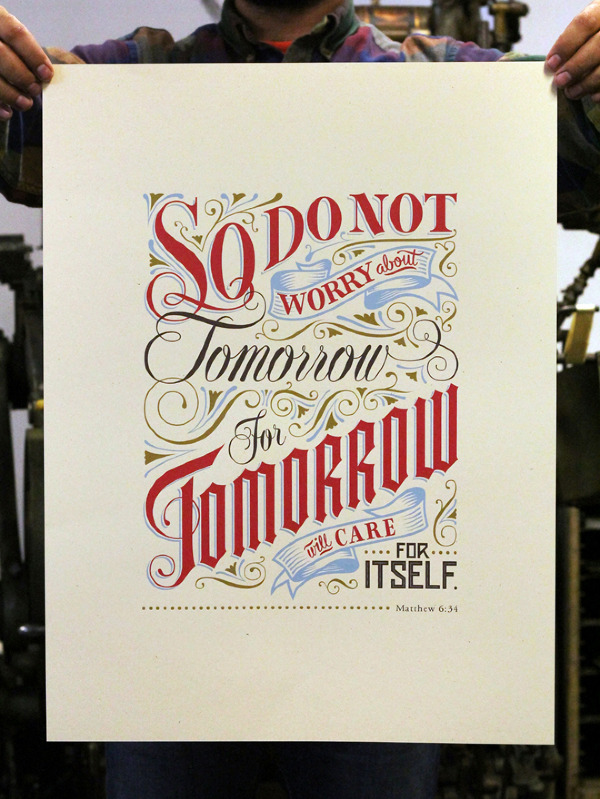 SO DO NOT
WORRY about
Tomorrow
For
TOMORROW
will CARE
FOR
ITSELF.
Matthew 6:34